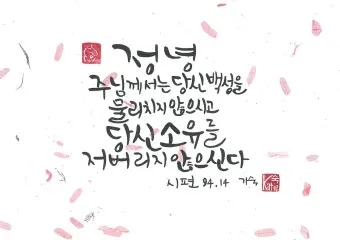 정녕
주님께서는 당신 백성을
물리치지 않으시고
당신 소유를
저버리지 않으신다
시편 94.14